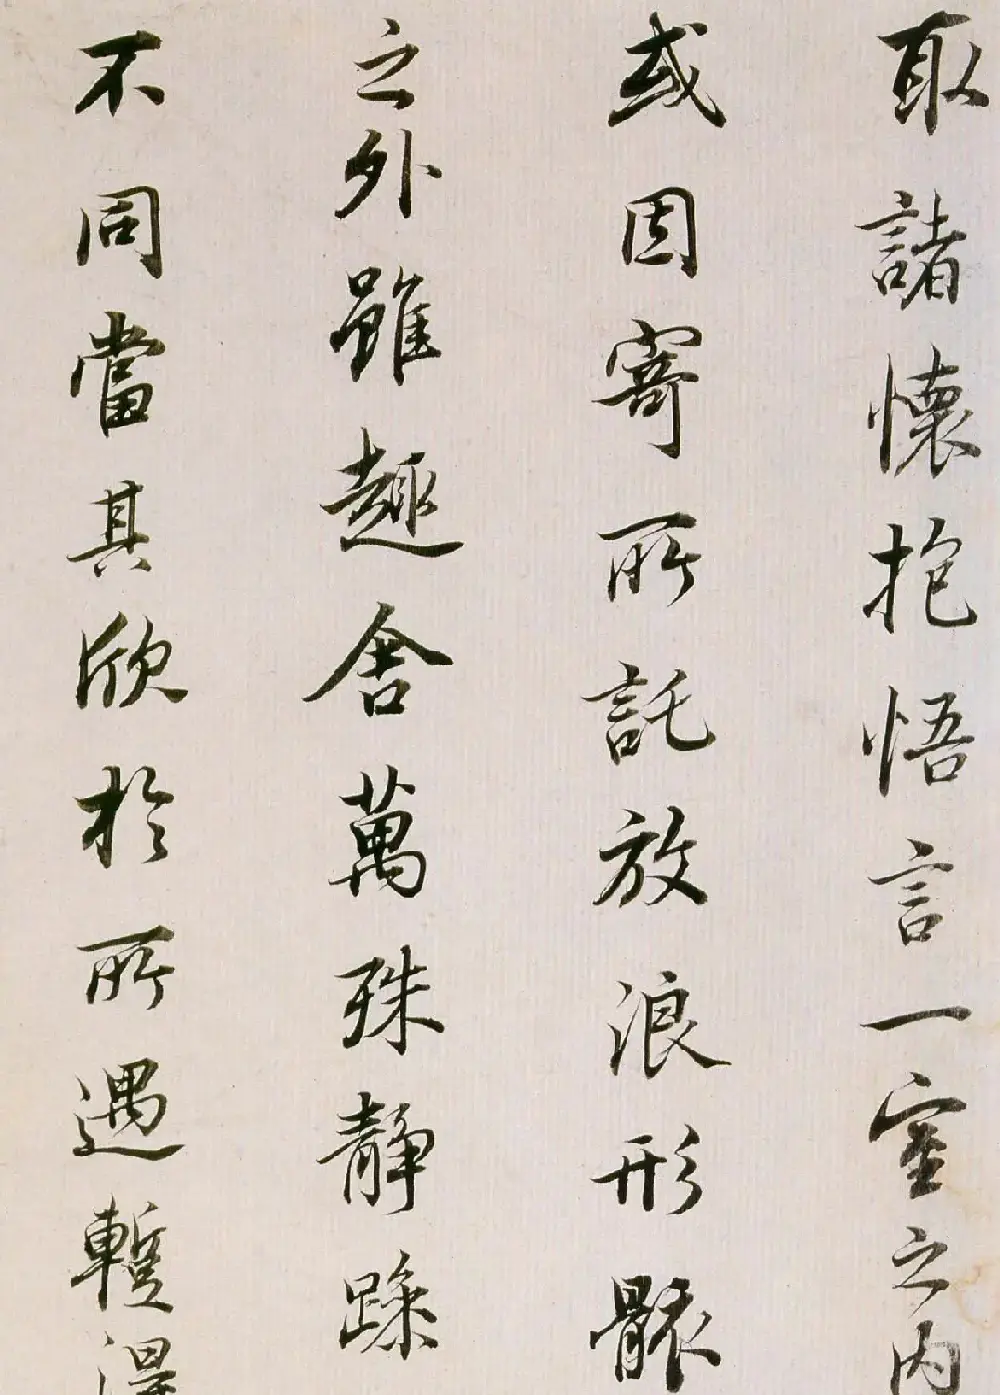 取諸懷抱悟言一室之内
或因寄所託放浪形骸
之外雖趣舍萬殊静躁
不同當其欣於所遇蹔得